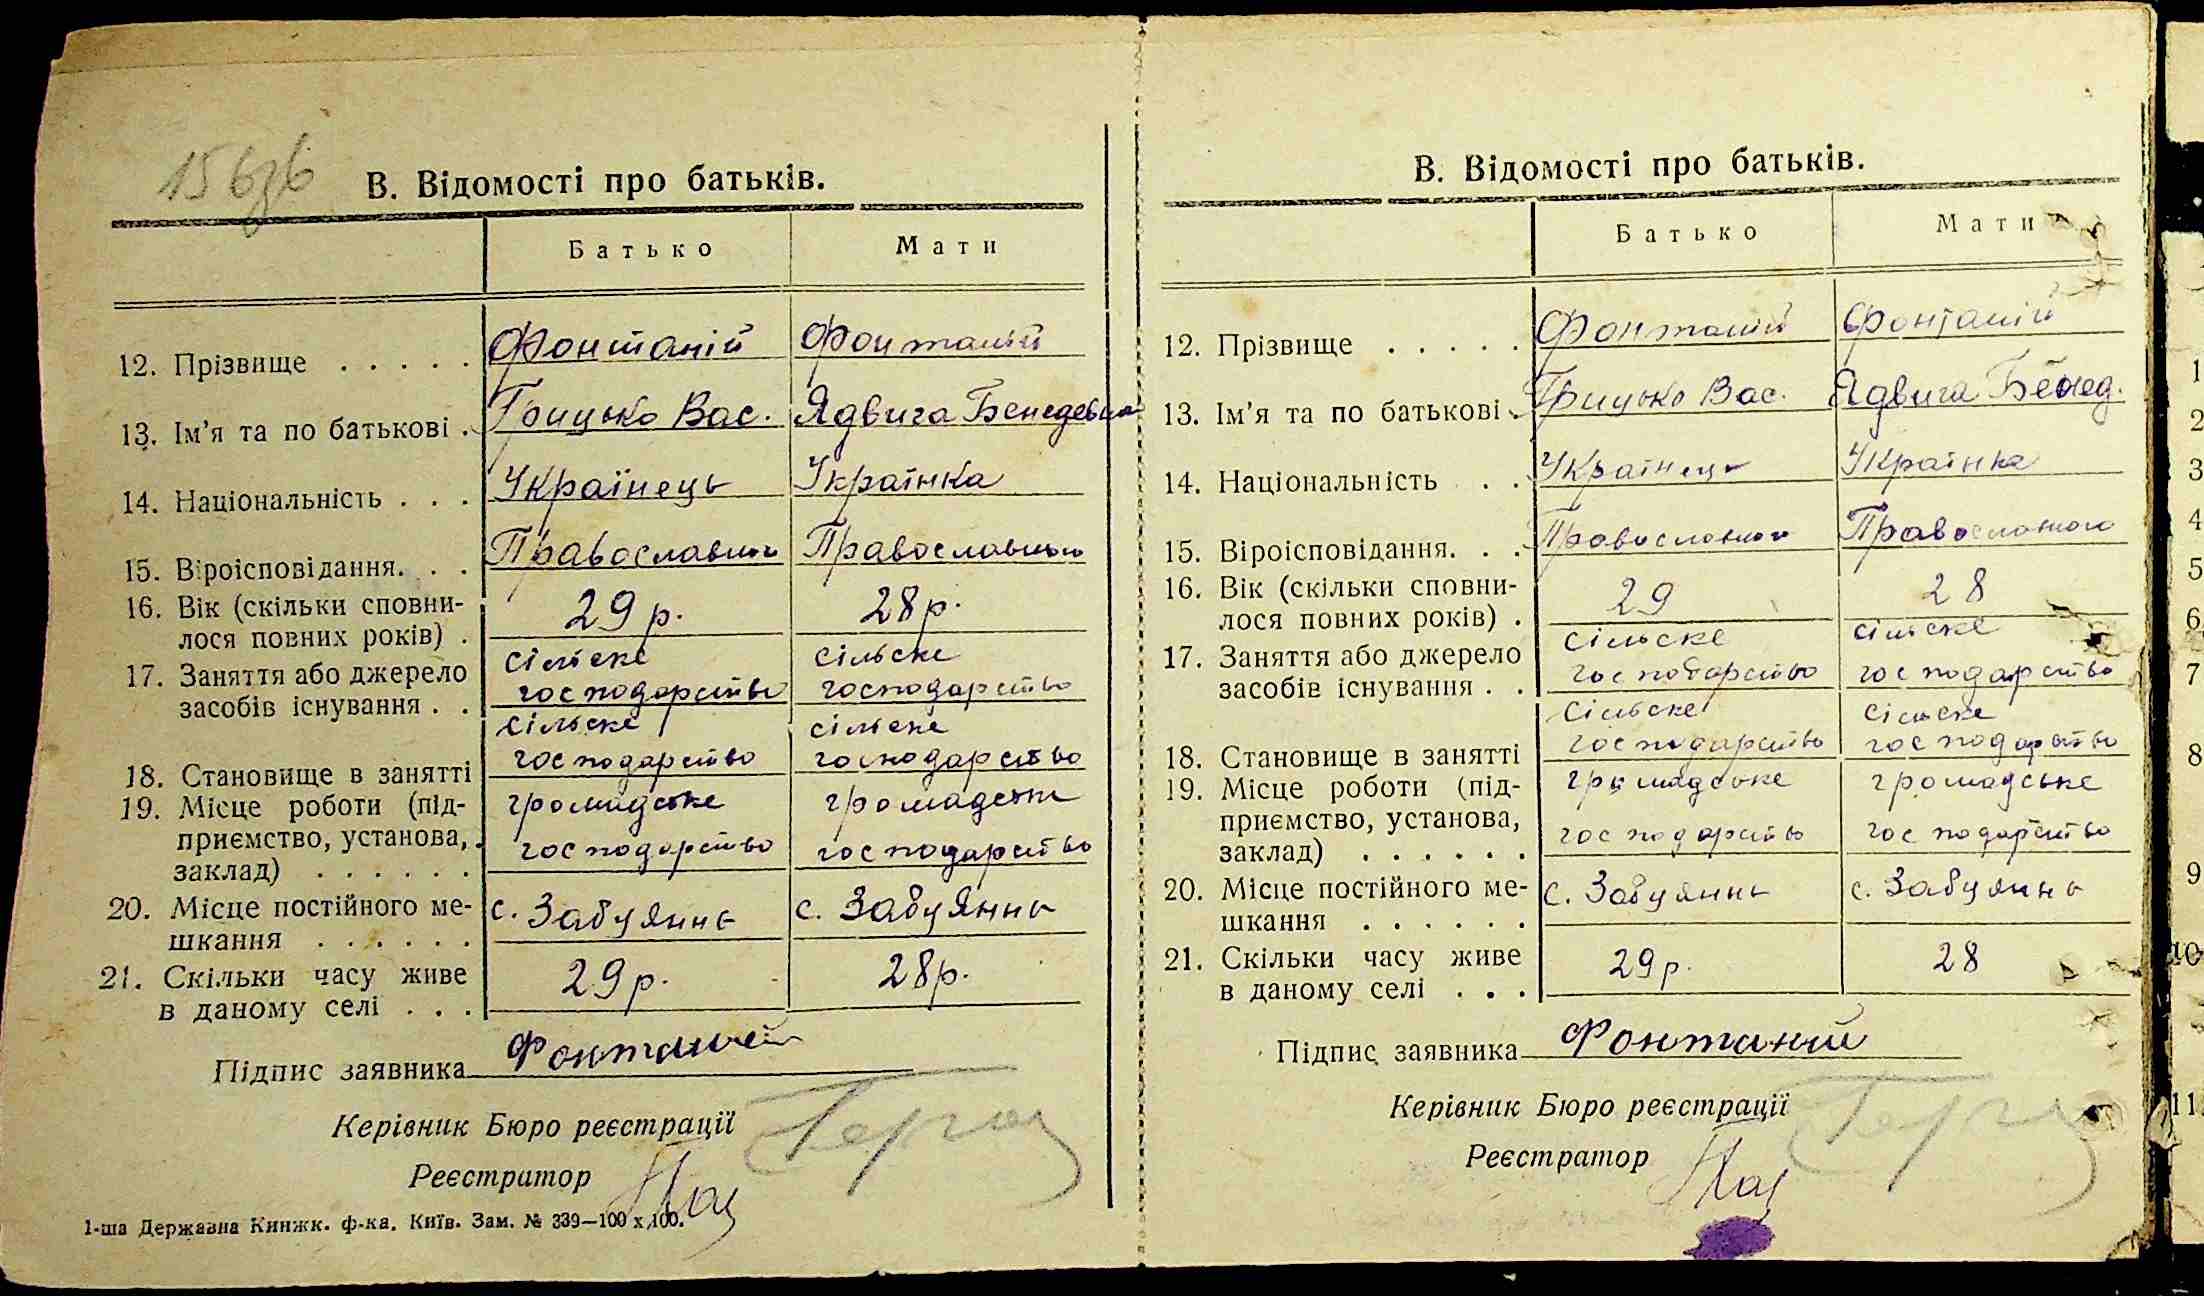 В. Відомості про батьків.
Батько Мати
12. Прізвище . . . . . Фонтаній Фонтаній
13. Ім'я та по батькові . Грицько Вас. Ядвига Бенедевна
14. Національність . . . Українець Українка
15. Віроісповідання. . . Православного Православного
16. Вік (скільки сповни- 29 р. 28 р.
лося повних років) .
17. Заняття або джерело сільске сільске
засобів існування . . господарство господарство
сільске сільске
18. Становище в занятті господарство господарство
19. Місце роботи (під- громадське громадське
приємство, установа, господарство господарство
заклад) . . . . . .
20. Місце постійного ме- с. Забуяннь с. Забуяннь
шкання . . . . . .
21. Скільки часу живе 29 р. 28 р.
в даному селі . . .
Підпис заявника Фонтаней
Керівник Бюро реєстрації
Реєстратор
1-ша Державна Книжк. ф-ка. Київ. Зам. № 339—100 х 100.
В. Відомості про батьків.
Батько Мати
12. Прізвище . . . . . Фонтаній Фонтаній
13. Ім'я та по батькові . Грицько Вас. Ядвига Бенед.
14. Національність . . Українець Українка
15. Віроісповідання. . . Православного Православного
16. Вік (скільки сповни- 29 28
лося повних років) .
17. Заняття або джерело сільске сільске
засобів існування . . господарство господарство
сільске сільске
18. Становище в занятті господарство господарство
19. Місце роботи (під- громадське громадське
приємство, установа, господарство господарство
заклад) . . . . . .
20. Місце постійного ме- с. Забуяннь с. Забуяннь
шкання . . . . . .
21. Скільки часу живе 29 р. 28
в даному селі . . .
Підпис заявника Фонтаний
Керівник Бюро реєстрації
Реєстратор
1
2
3
4
5
6
7
8
9
10
11